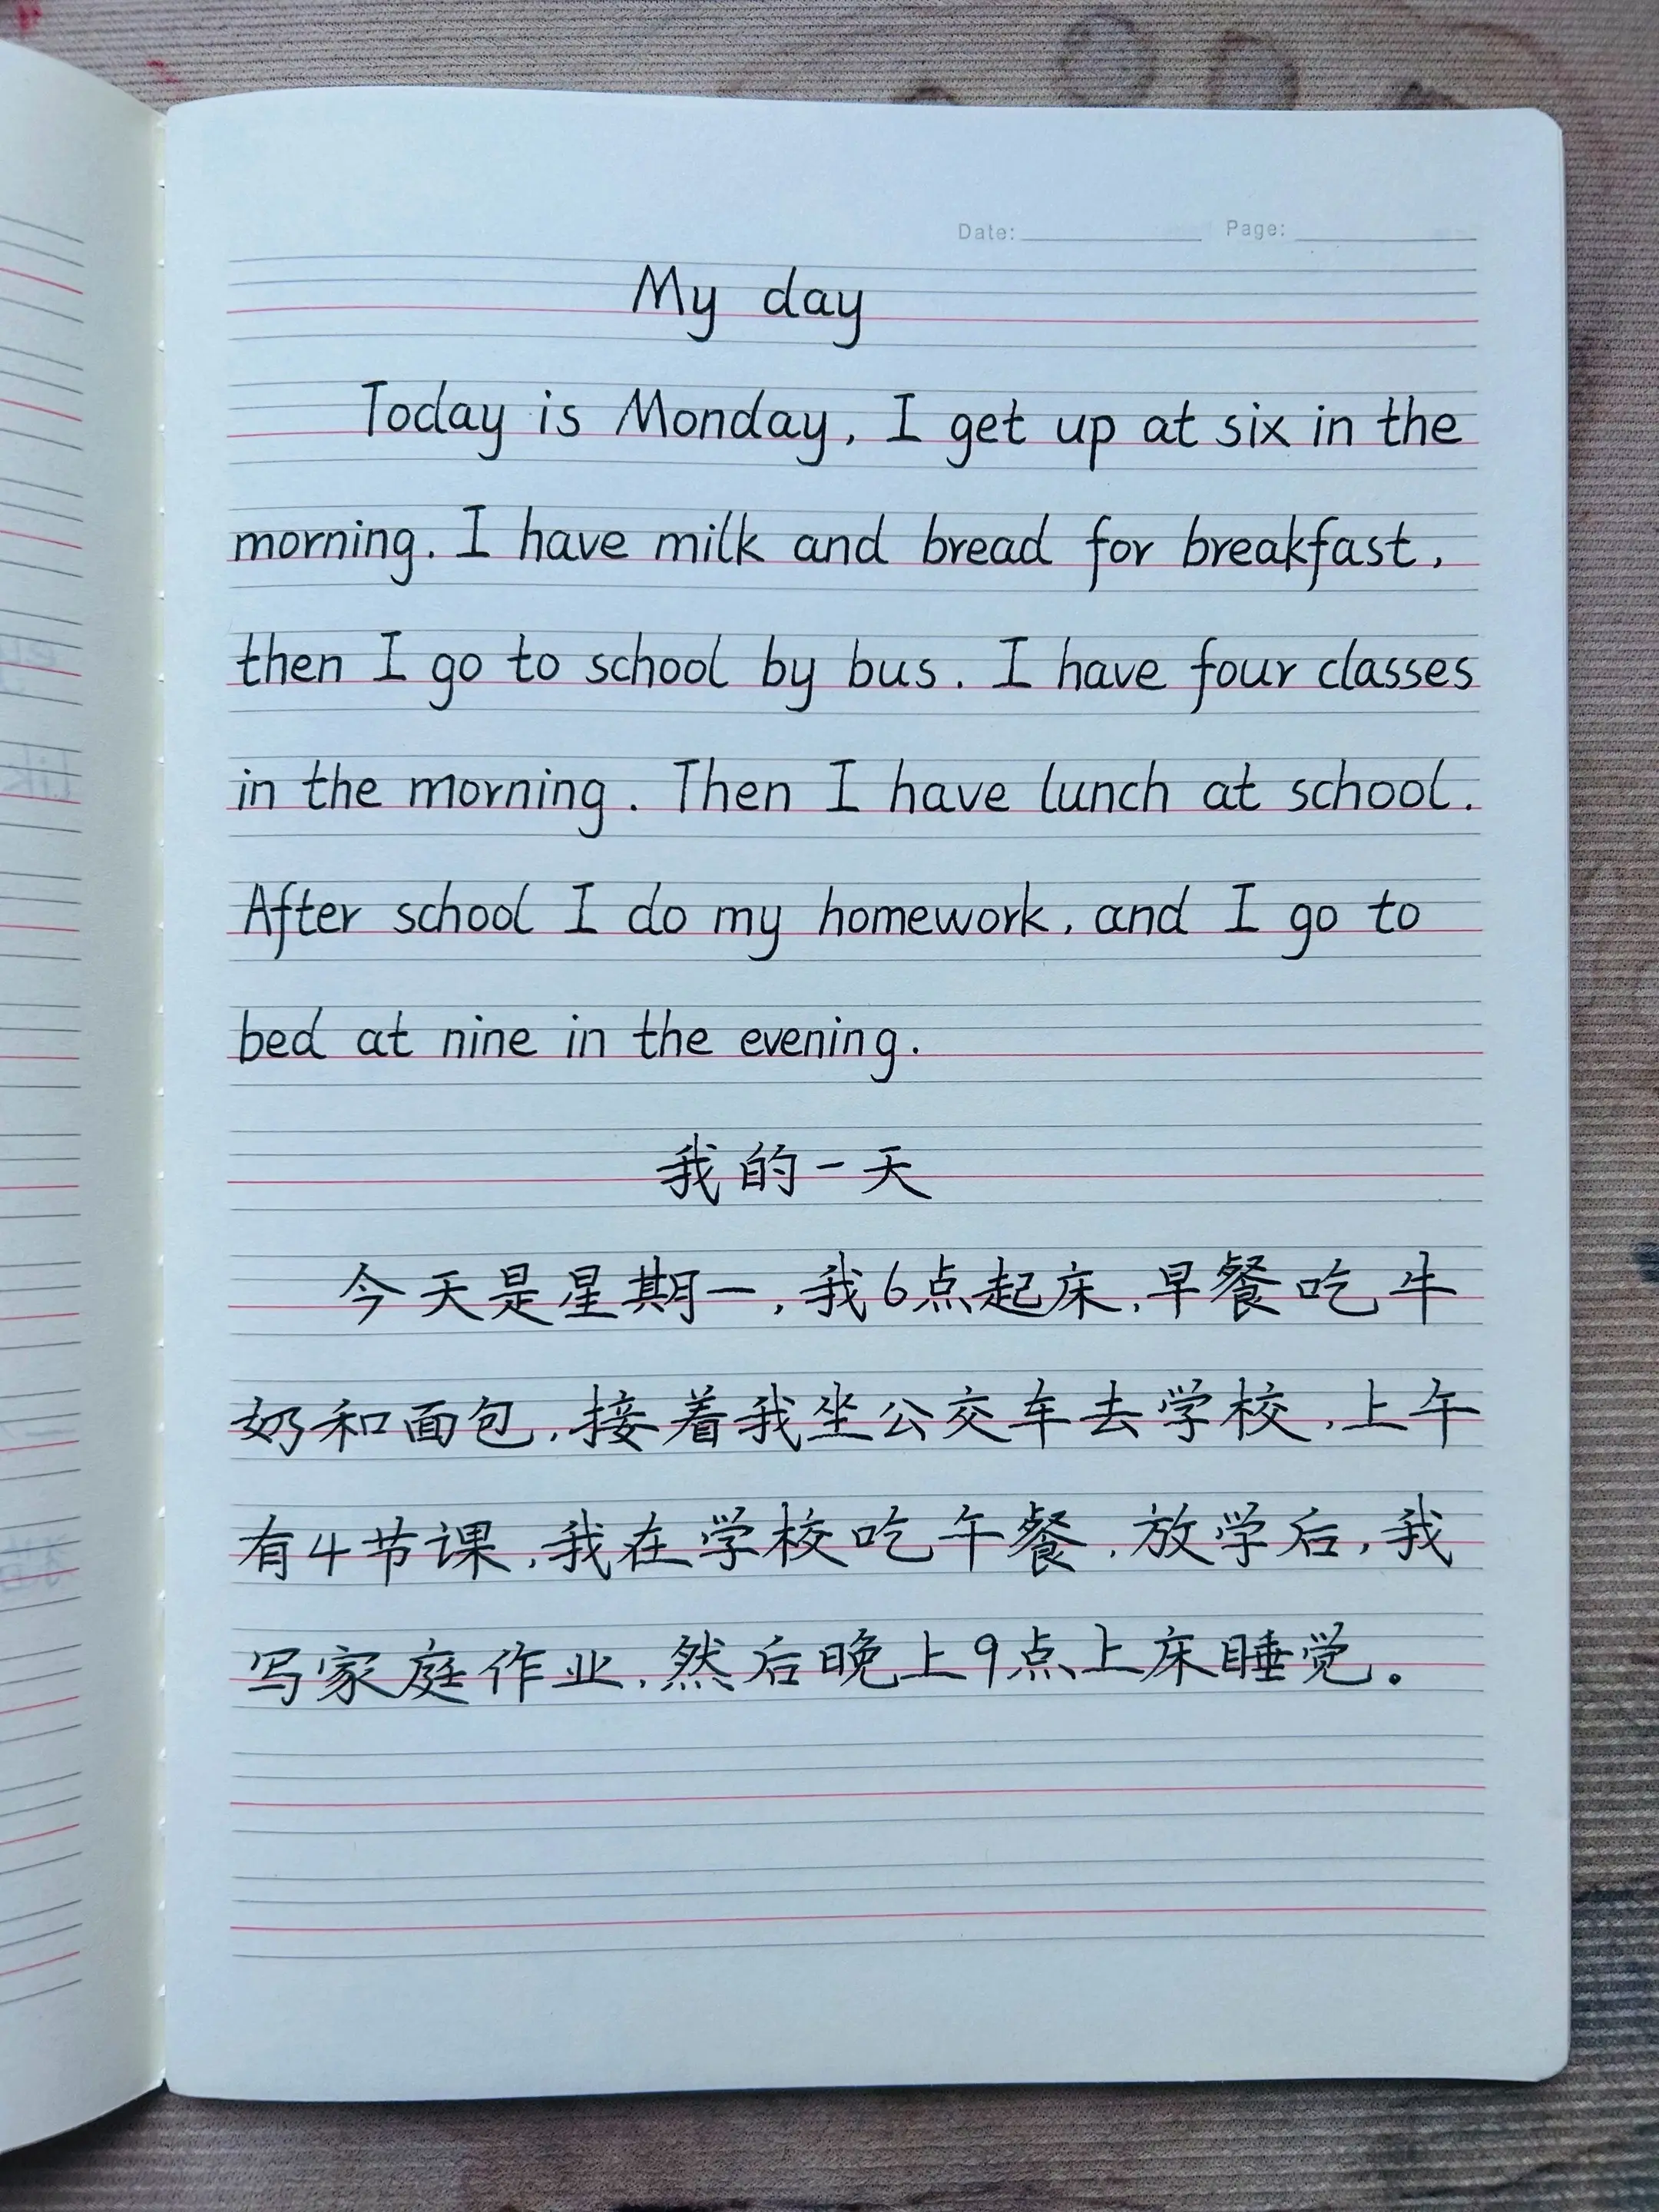 Date: Page:
My day
Today is Monday, I get up at six in the
morning. I have milk and bread for breakfast,
then I go to school by bus. I have four classes
in the morning. Then I have lunch at school.
After school I do my homework, and I go to
bed at nine in the evening.
我的一天
今天是星期一,我6点起床,早餐吃牛
奶和面包,接着我坐公交车去学校,上午
有4节课,我在学校吃午餐,放学后,我
写家庭作业,然后晚上9点上床睡觉。